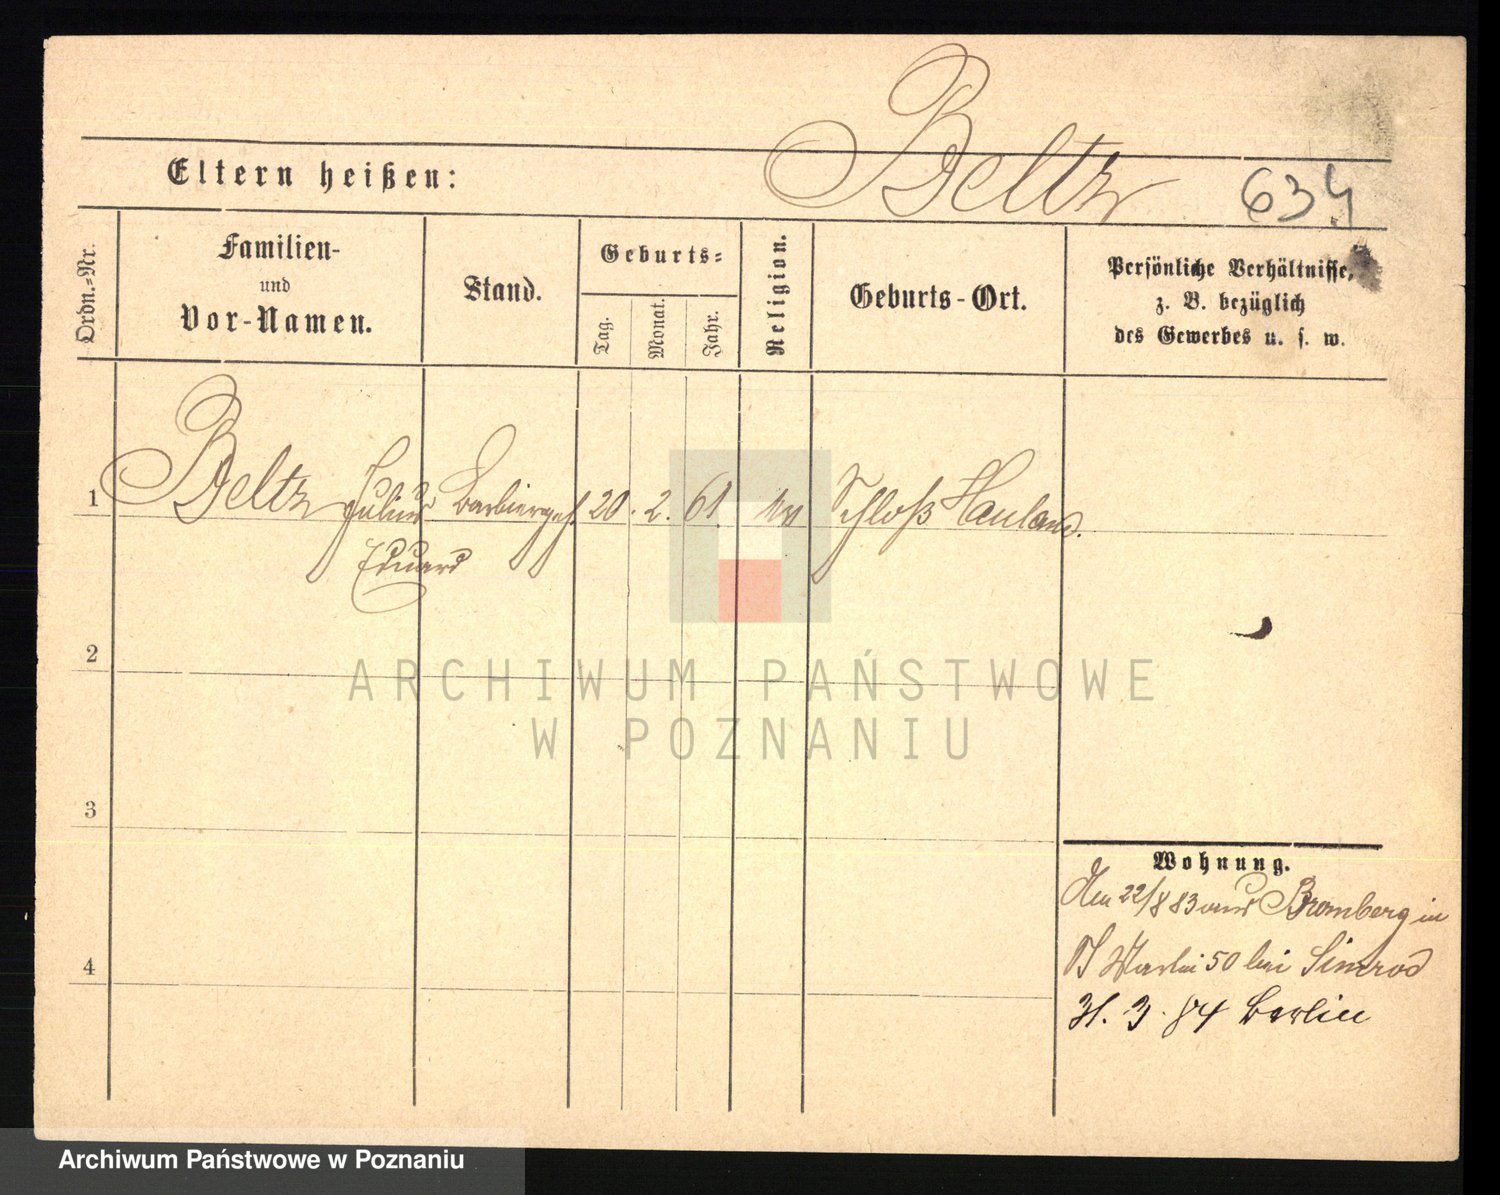 Beltz
634
Eltern heißen:
Ordn.-Nr.
Familien-
und
Vor-Namen.
Stand.
Geburts-
Tag.
Monat.
Jahr.
Religion.
Geburts-Ort.
Persönliche Verhältnisse,
z. B. bezüglich
des Gewerbes u. s. w.
1
Beltz Julius Barbiergeh. 20. 2. 61. ev Schloß Hauland.
Eduard
2
3
4
Wohnung.
22/8 83 aus Bromberg in
50 bei Simrod
31. 3. 84 Berlin
ARCHIWUM PAŃSTWOWE
W POZNANIU
Archiwum Państwowe w Poznaniu